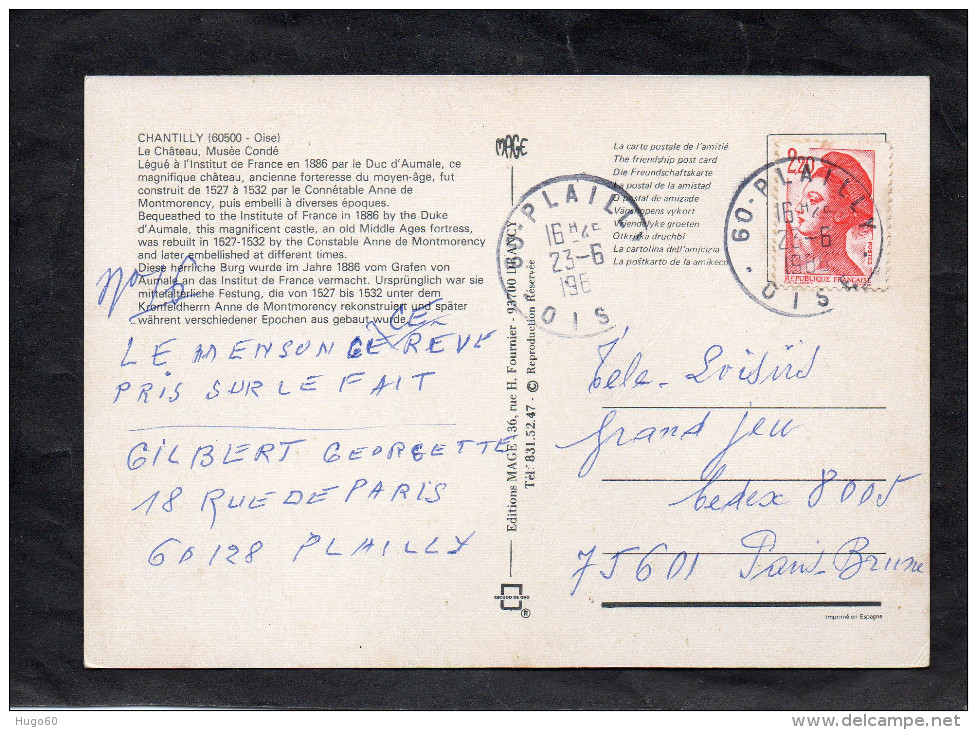 CHANTILLY (60500 - Oise)
Le Château, Musée Condé
Légué à l'Institut de France en 1886 par le Duc d'Aumale, ce
magnifique château, ancienne forteresse du moyen-âge, fut
construit de 1527 à 1532 par le Connétable Anne de
Montmorency, puis embelli à diverses époques.
Bequeathed to the Institute of France in 1886 by the Duke
d'Aumale, this magnificent castle, an old Middle Ages fortress,
was rebuilt in 1527-1532 by the Constable Anne de Montmorency
and later embellished at different times.
Diese herrliche Burg wurde im Jahre 1886 vom Grafen von
Aumale an das Institut de France vermacht. Ursprünglich war sie
mittelalterliche Festung, die von 1527 bis 1532 unter dem
Kronfeldherrn Anne de Montmorency rekonstruiert und später
während verschiedener Epochen aus gebaut wurde.
LE MENSONGE REVE
PRIS SUR LE FAIT
GILBERT GEORGETTE
18 RUE DE PARIS
60128 PLAILLY
MAGE
Editions MAGE, 36, rue H. Fournier - 93700 DRANCY
Tél: 831.52.47 - © Reproduction Réservée
ESCUDO DE ORO
®
La carte postale de l'amitié
The friendship post card
Die Freundschaftskarte
La postal de la amistad
O postal de amizade
Vänskapens vykort
Vriendelijke groeten
Otkritka druchbi
La cartolina dell'amicizia
La postkarto de la amikeco
60-PLAILLY
16H45
23-6
198
OISE
60-PLAILLY
16H45
23-6
198
OISE
2,20
POSTES
RÉPUBLIQUE FRANÇAISE
Tele-Loisirs
Grand Jeu
Cedex 8005
75601 Paris-Brune
Imprimé en Espagne
Hugo60
www.delcampe.net